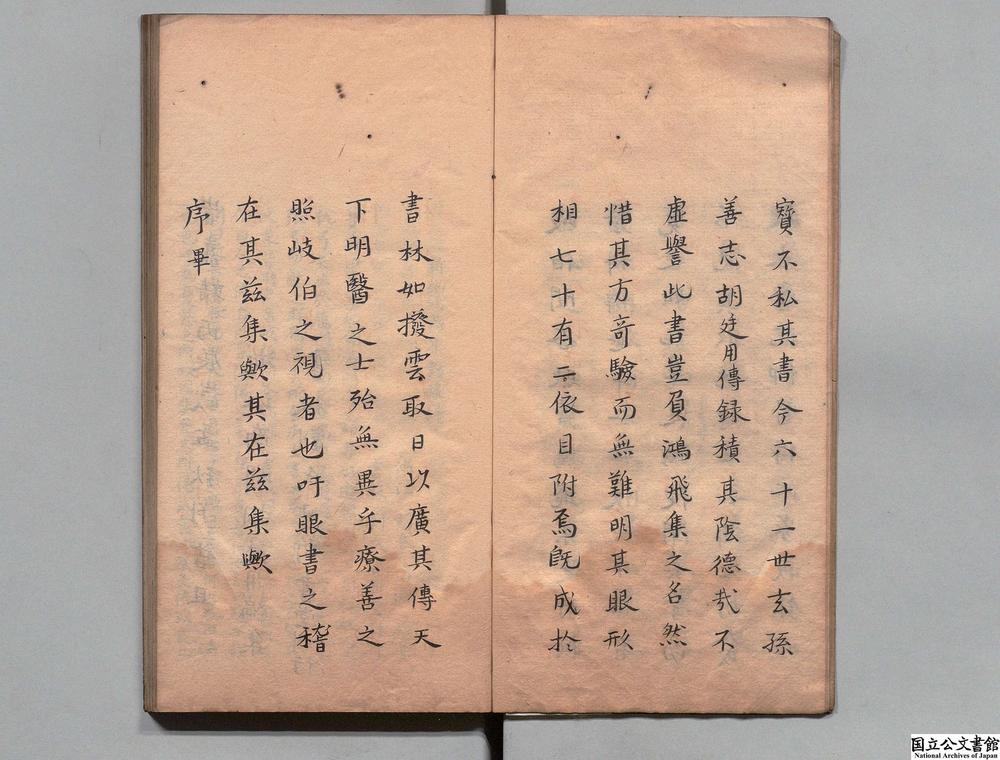 寶不私其書今六十一世玄孫
善志胡廷用傳録積其陰德㢤不
虛譽此書豈負鴻飛集之名然
惜其方竒驗而無難明其眼形
相七十有二依目附焉旣成於
書林如撥雲取日以廣其傳天
下明醫之士殆無異乎療善之
照岐伯之視者也吁眼書之稽
在其兹集歟其在兹集歟
序畢
国立公文書館
National Archives of Japan